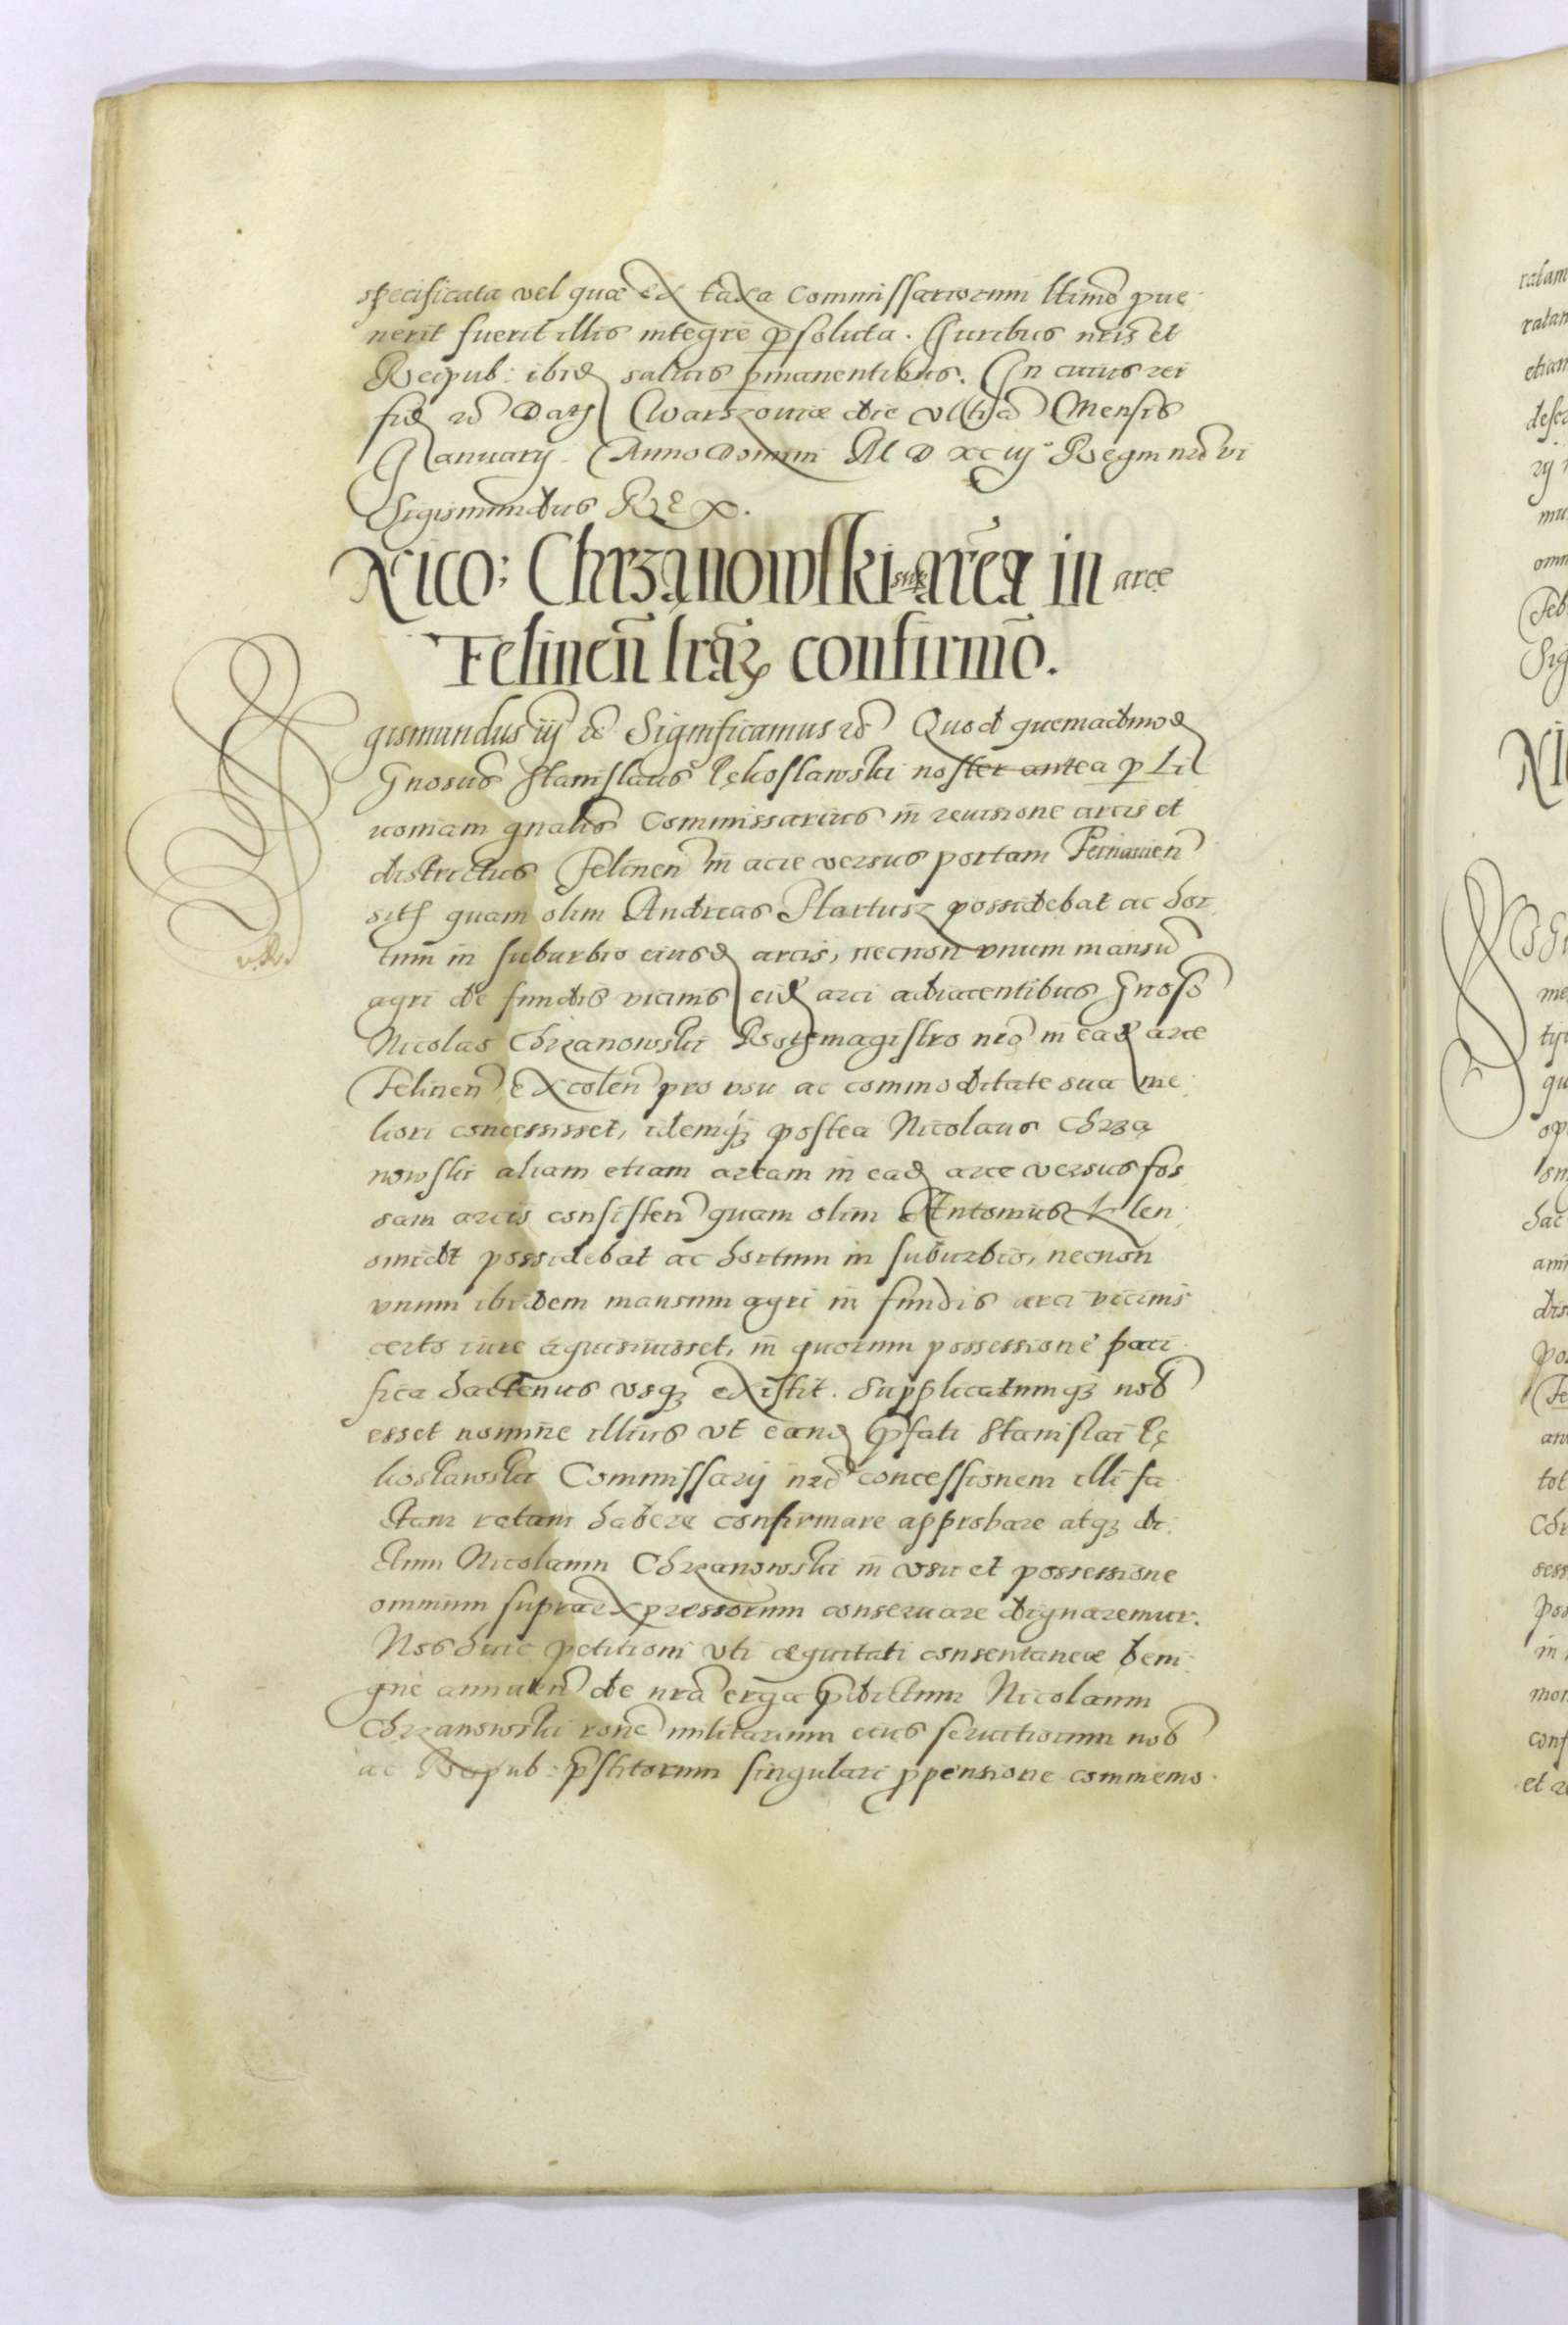 specificata vel quæ ex taxa Commissariorum ltimo pue
nerit fuerit illis integre psoluta. Juribus nris et
Reipub: ibid saluis pmanentibus. In cuius rei
fid Dat Warszouiæ die vltia Mensis
January Anno Domini M D XC iij Regni nri vi
Sigismundus Rex.
Nico: Chrzanowski sup area in arce
Felinen lraz confirmo.
gismundus iij Significamus Quod quemadmod
Gnosus Stanislaus Lękoslawski noster antea p Li
uoniam gnalis Commissarius in reuisione arcis et
districtus Felinen in acie versus portam Pernauien
sit quam olim Andreas Plartusz possidebat ac hor
tum in suburbio eiusd arcis, necnon vnum mansu
agri de fundis vicinis eid arci adiacentibus Gnoso
Nicolao Chrzanowski Rotmagistro nro in ead arce
Felinen excolen pro vsu ac commoditate sua me
liori concessisset, idemq postea Nicolaus Chrza
nowski aliam etiam aream in ead arce versus fos
sam arcis consisten quam olim Antonius Klen
smidt possidebat ac hortum in suburbio, necnon
vnum ibidem mansum agri in fundis arci vicinis
certo iure aquisiuisset, in quorum possessione paci
fica hactenus vsq existit. Supplicatumq nob
esset nomine illius vt eand pfati Stanislai Lę
koslawski Commissarij nri concessionem illi fa
ctam ratam habere confirmare approbare atq di
ctum Nicolaum Chrzanowski in vsu et possessione
omnium supraexpressorum conseruare dignaremur.
Nos huic petitioni vti æquitati consentaneæ beni
gne annuen de nra erga pdictum Nicolaum
Chrzanowski rone militarium eius seruitiorum nob
ac Reipub: pstitorum singulari ppensione commemo